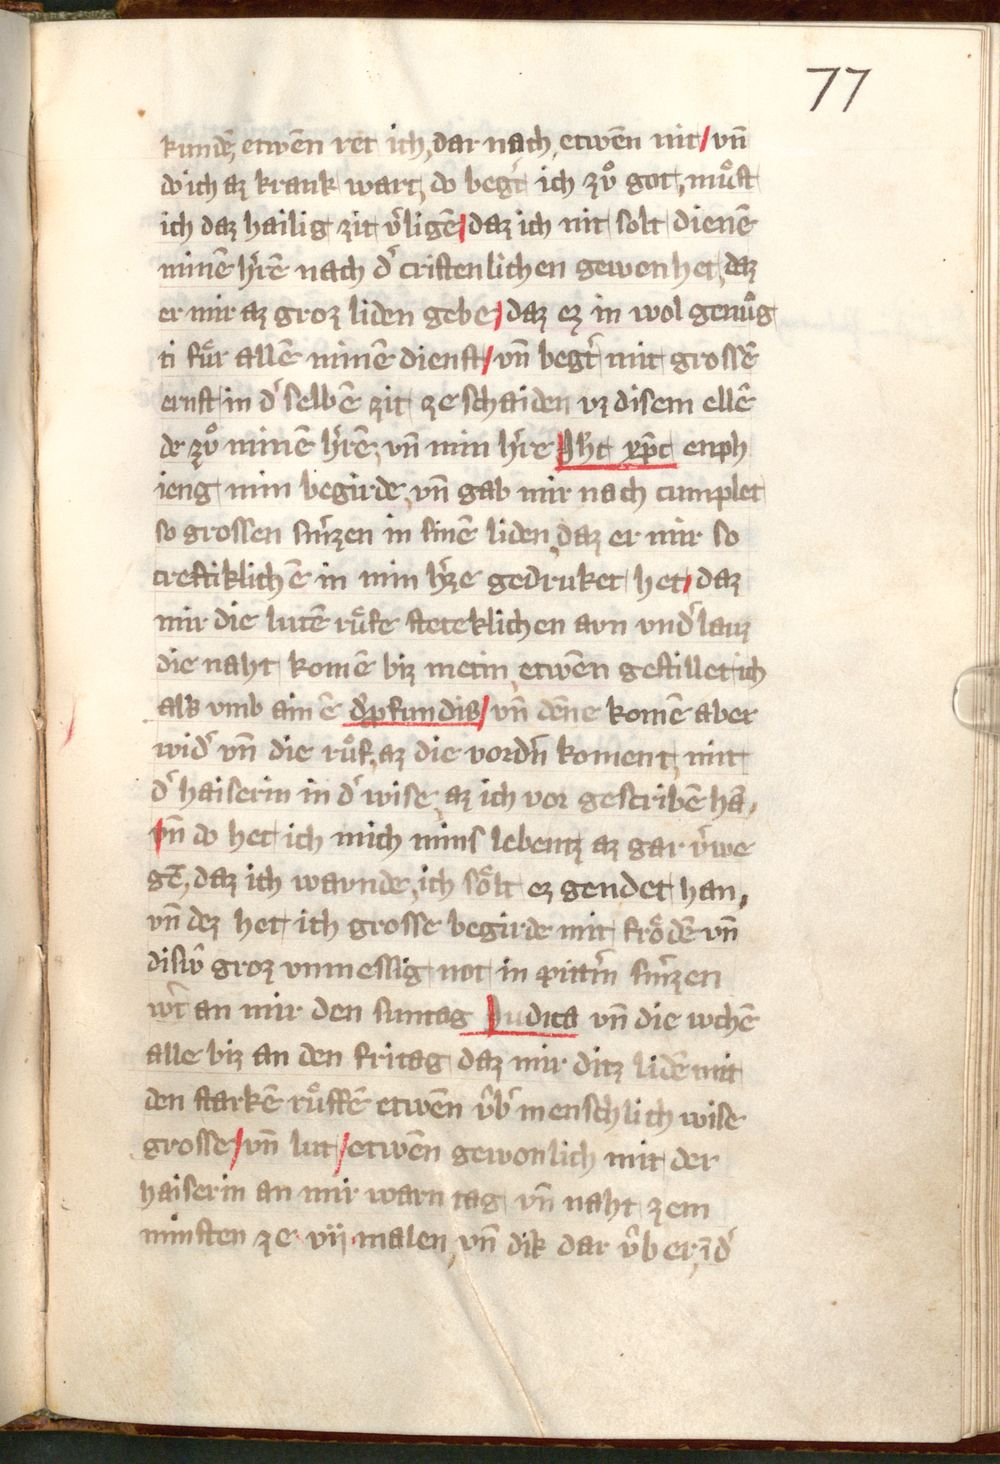 77
kundē, etwēn ret ich, dar nach, etwēn nit / vn̄
do ich az krank wart, do beg̾t ich zuͦ got, muͦst
ich daz hailig zit v̾ligē / daz ich nit solt dienē
minē h̾rē nach d̾ cristenlichen gewonhet, daz
er mir az groz liden gebe / daz ez in wol genuͦg
ti fuͤr allē minē dienst / vn̄ beg̾t mit grossē
ernst in d̾ selbē zit ze schaiden vz disem ellē
de zuͦ minē h̾rē, vn̄ min h̾re Jh̾c xp̄c enph
ieng min begirde, vn̄ gab mir nach cumplet
so grossen sm̾zen in sinē liden, daz er mir so
creftiklichē in min h̾ze gedruket het / daz
mir die lutē ruͤfe steteklichen avn vnd̾lauz
die naht komē biz metin, etwēn gestillet ich
als vmb ainē d̾p̱fundis / vn̄ dēne komē aber
wid̾ vn̄ die ruͦf, az die vordn̄ koment, mit
d̾ haiserin in d̾ wise, az ich vor gescribē hā,
vn̄ do het ich mich mins lebentz az gar v̾we
gē, daz ich wavnde, ich soͤlt ez gendet han,
vn̄ dez het ich grosse begirde mit froͤdē vn̄
disiv̂ groz vnmessig not in pittm̾ sm̾zen
wt̾ an mir den suntag Judica vn̄ die wchē
alle biz an den fritag daz mir ditz lidē mit
den starkē ruͤffē etwēn v̂b̾ menschlich wise
grosse / vn̄ lut / etwēn gewonlich mit der
haiserin an mir warn tag vn̄ naht zem
minsten ze · vij · malen, vn̄ dik dar v̂ber, īd̾